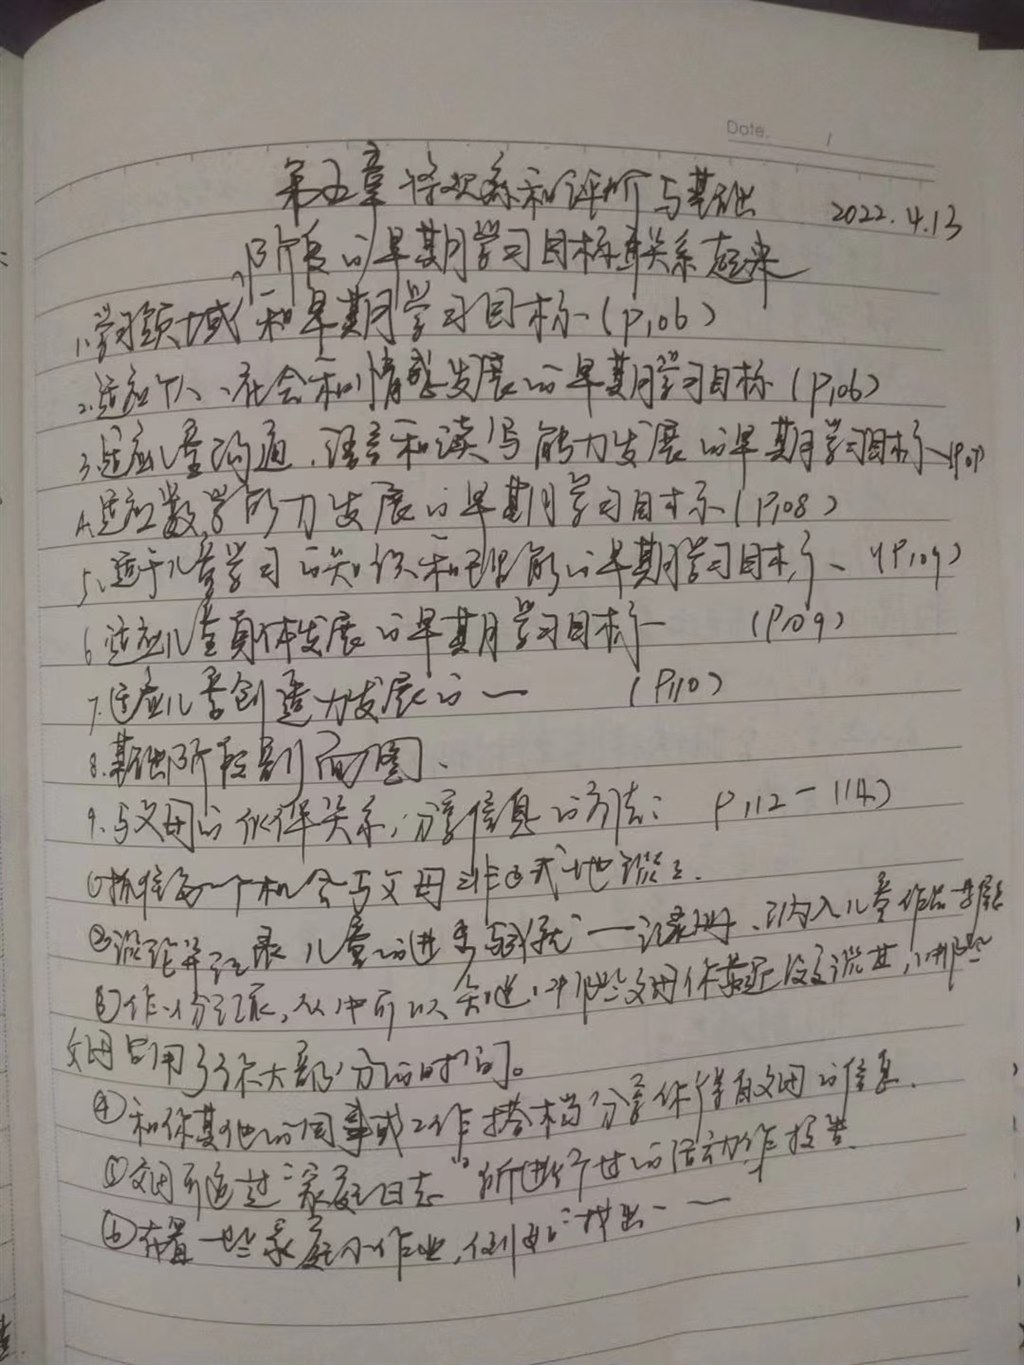 Date.
第五章 将观察和评价与基础
2022.4.13
阶段的早期学习目标联关系起来
1.学习领域和早期学习目标(P106)
2.适应个人、社会和情感发展的早期学习目标(P106)
3.适应儿童沟通、语言和读写能力发展的早期学习目标(P107)
4.适应数学能力发展的早期学习目标(P108)
5.适于儿童学习的知识和智能的早期学习目标、(P109)
6.适应儿童身体发展的早期学习目标一 (P109)
7.适应儿童创造力发展的一 (P110)
8.基础阶段剖面图、
9.与父母的伙伴关系,分享信息的方法: P112-114)
①抓住每一个机会与父母非正式地谈话.
②谈论并记录儿童的进步与成就一记录册、纳入儿童作品
③作一份记录,从中可以知道,哪些父母你最近没交谈过,哪些
父母占用了你大部分的时间。
④和你其他的同事或工作搭档分享你得自父母的信息.
⑤父母可通过"家庭日志"所进行过的活动作报告.
⑥布置一些家庭小作业,例如:"找出一一